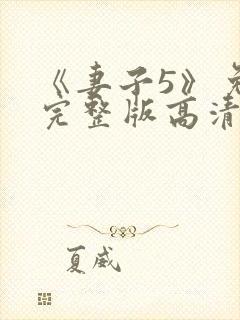 《妻子5》免
完整版高清
夏威